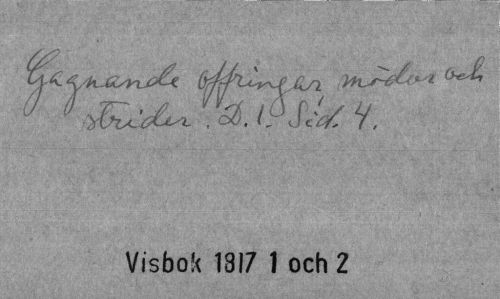 Gagnande offringar, mödor och
strider. D. 1. Sid. 4.
Visbok 1817 1 och 2